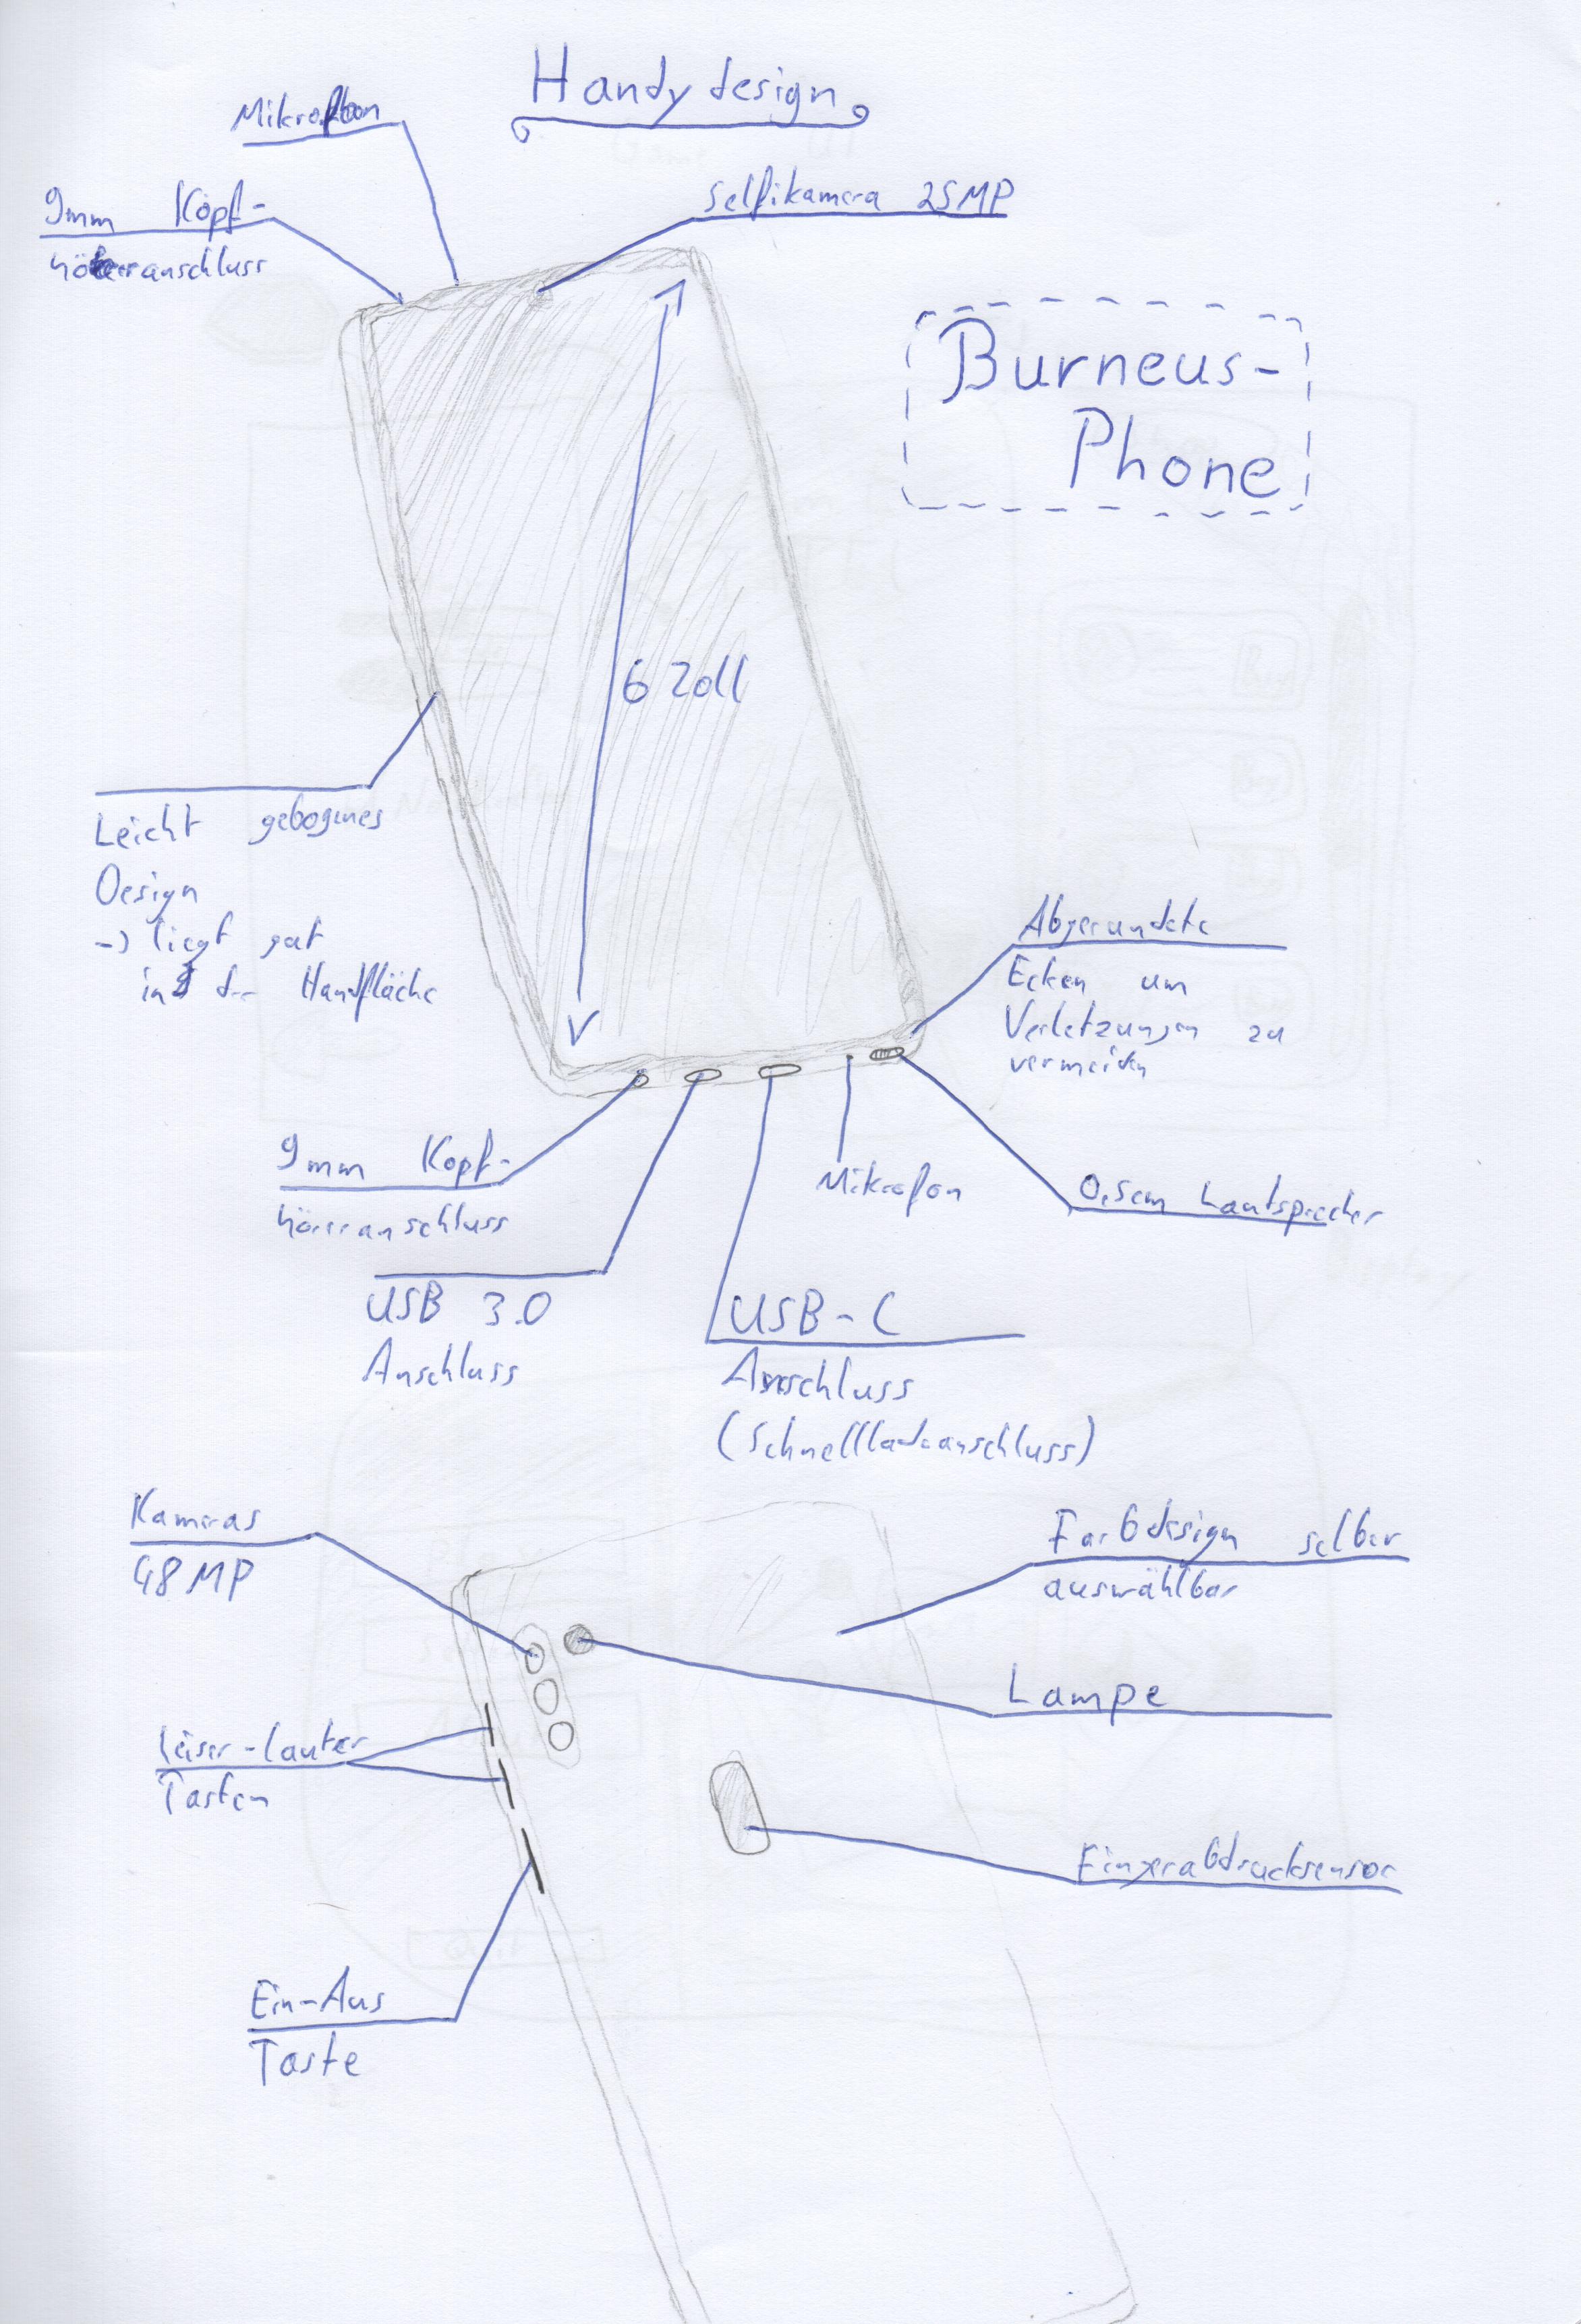 Handydesign
Mikrofon
9mm Kopf-
höreranschluss
Selfikamera 25MP
Burneus-
Phone
6 Zoll
Leicht gebogenes
Design
-> liegt gut
in der Handfläche
Abgerundete
Ecken um
Verletzungen zu
vermeiden
9mm Kopf-
höreranschluss
Mikrofon
0,5cm Lautsprecher
USB 3.0
Anschluss
USB-C
Anschluss
(Schnellladeanschluss)
Kameras
48MP
Farbdesign selber
auswählbar
Lampe
Leiser-lauter
Tasten
Fingerabdrucksensor
Ein-Aus
Taste